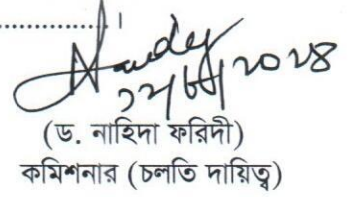 ..................... ।
(ড. নাহিদা ফরিদী)
কমিশনার (চলতি দায়িত্ব)